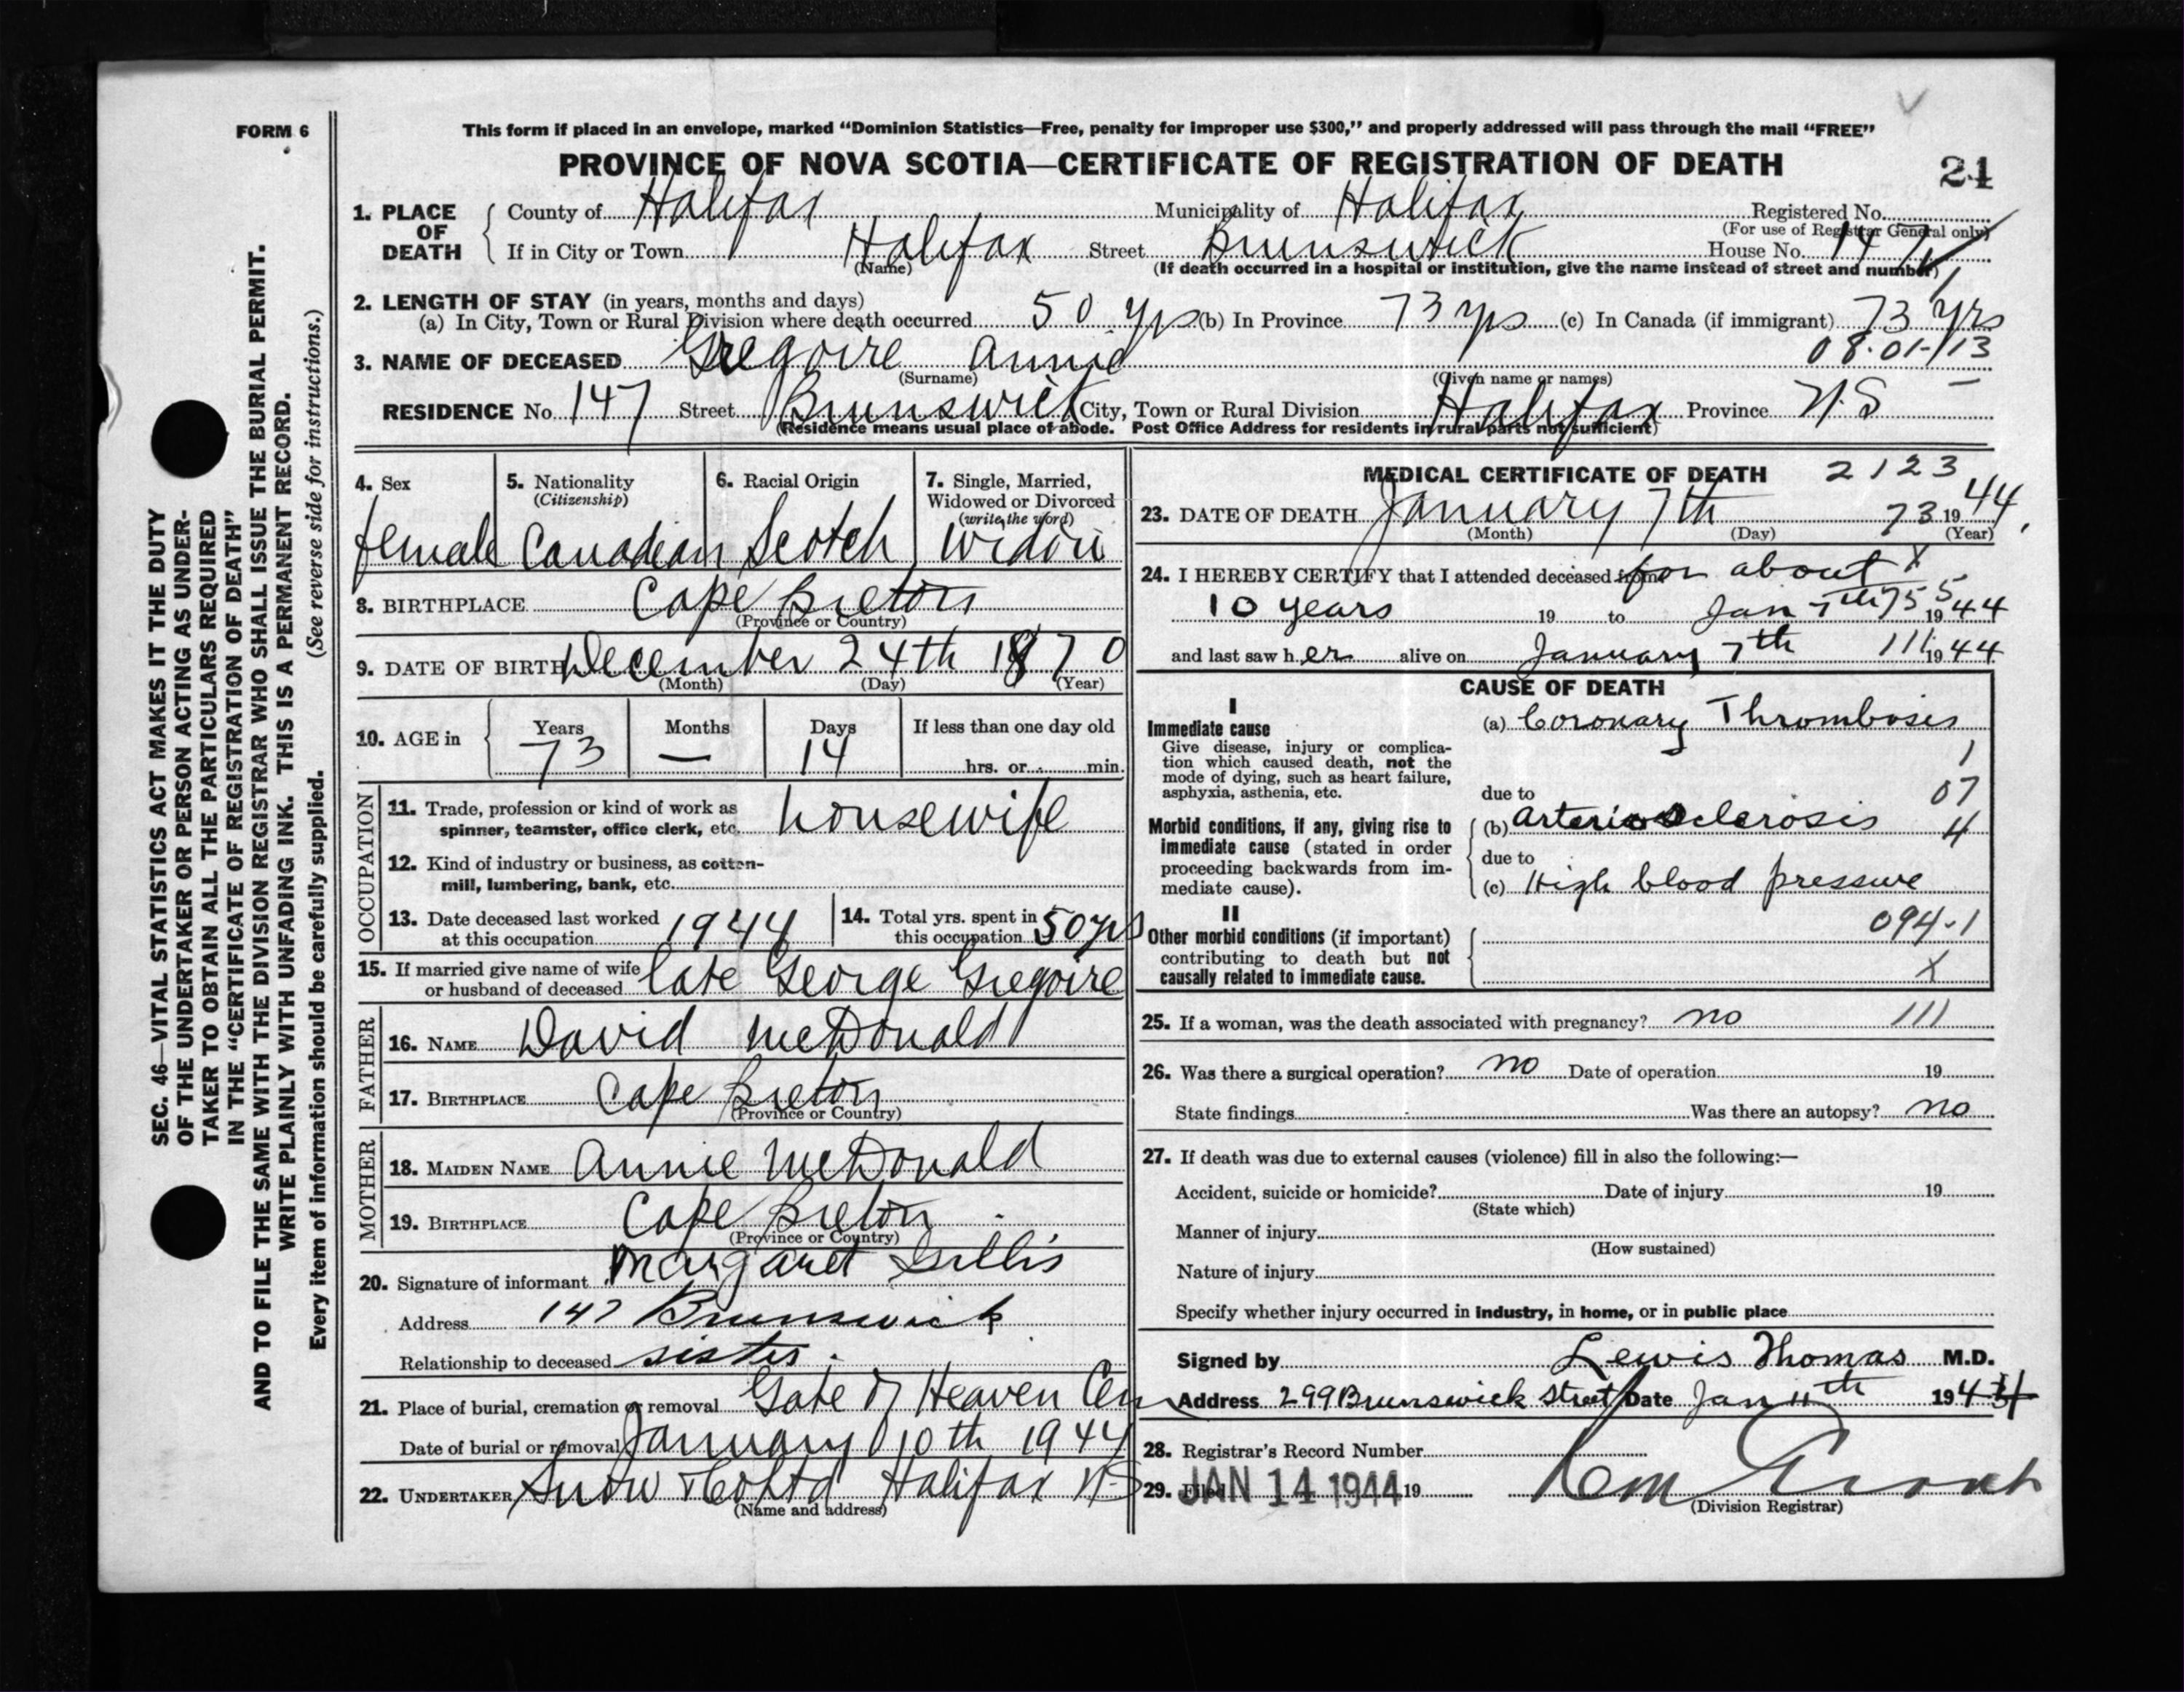 FORM 6
This form if placed in an envelope, marked “Dominion Statistics—Free, penalty for improper use $300,” and properly addressed will pass through the mail “FREE”
PROVINCE OF NOVA SCOTIA—CERTIFICATE OF REGISTRATION OF DEATH
21
1. PLACE OF DEATH County of Halifax Municipality of Halifax Registered No.
(For use of Registrar General only)
If in City or Town Halifax Street Brunswick House No. 147
(Name) (If death occurred in a hospital or institution, give the name instead of street and number)
2. LENGTH OF STAY (in years, months and days)
(a) In City, Town or Rural Division where death occurred 50 yrs (b) In Province 73 yrs (c) In Canada (if immigrant) 73 yrs
08-01-113
3. NAME OF DECEASED Gregoire Annie
(Surname) (Given name or names)
RESIDENCE No. 147 Street Brunswick City, Town or Rural Division Halifax Province N.S —
(Residence means usual place of abode. Post Office Address for residents in rural parts not sufficient)
4. Sex 5. Nationality (Citizenship) 6. Racial Origin 7. Single, Married, Widowed or Divorced (write the word)
female Canadian Scotch Widow
8. BIRTHPLACE Cape Breton
(Province or Country)
9. DATE OF BIRTH December 24th 1870
(Month) (Day) (Year)
10. AGE in Years Months Days If less than one day old
73 — 14 hrs. or min.
OCCUPATION
11. Trade, profession or kind of work as spinner, teamster, office clerk, etc. housewife
12. Kind of industry or business, as cotton-mill, lumbering, bank, etc.
13. Date deceased last worked at this occupation 1944 14. Total yrs. spent in this occupation 50 yrs
15. If married give name of wife or husband of deceased late George Gregoire
FATHER
16. NAME David McDonald
17. BIRTHPLACE Cape Breton
(Province or Country)
MOTHER
18. MAIDEN NAME Annie McDonald
19. BIRTHPLACE Cape Breton
(Province or Country)
20. Signature of informant Margaret Gillis
Address 147 Brunswick
Relationship to deceased sister.
21. Place of burial, cremation or removal Gate of Heaven Cem
Date of burial or removal January 10th 1944
22. UNDERTAKER Snow & Co Ltd Halifax N.S
(Name and address)
MEDICAL CERTIFICATE OF DEATH 2123
23. DATE OF DEATH January 7th 73 1944.
(Month) (Day) (Year)
24. I HEREBY CERTIFY that I attended deceased from for about X
10 years 19 to Jan 7th 755 1944
and last saw her alive on January 7th 111 1944
CAUSE OF DEATH
I
Immediate cause (a) Coronary Thrombosis
Give disease, injury or complication which caused death, not the mode of dying, such as heart failure, asphyxia, asthenia, etc.
1
due to 07
Morbid conditions, if any, giving rise to immediate cause (stated in order proceeding backwards from immediate cause).
(b) Arteriosclerosis 4
due to
(c) High blood pressure
II
094-1
Other morbid conditions (if important) contributing to death but not causally related to immediate cause.
X
25. If a woman, was the death associated with pregnancy? no 111
26. Was there a surgical operation? no Date of operation 19
State findings Was there an autopsy? no
27. If death was due to external causes (violence) fill in also the following:—
Accident, suicide or homicide? Date of injury 19
(State which)
Manner of injury
(How sustained)
Nature of injury
Specify whether injury occurred in industry, in home, or in public place
Signed by Lewis Thomas M.D.
Address 299 Brunswick Street Date Jan 11th 1944
28. Registrar's Record Number
29. Filed JAN 14 1944 19
(Division Registrar)
SEC. 46—VITAL STATISTICS ACT MAKES IT THE DUTY
OF THE UNDERTAKER OR PERSON ACTING AS UNDER-
TAKER TO OBTAIN ALL THE PARTICULARS REQUIRED
IN THE “CERTIFICATE OF REGISTRATION OF DEATH”
AND TO FILE THE SAME WITH THE DIVISION REGISTRAR WHO SHALL ISSUE THE BURIAL PERMIT.
WRITE PLAINLY WITH UNFADING INK. THIS IS A PERMANENT RECORD.
Every item of information should be carefully supplied. (See reverse side for instructions.)